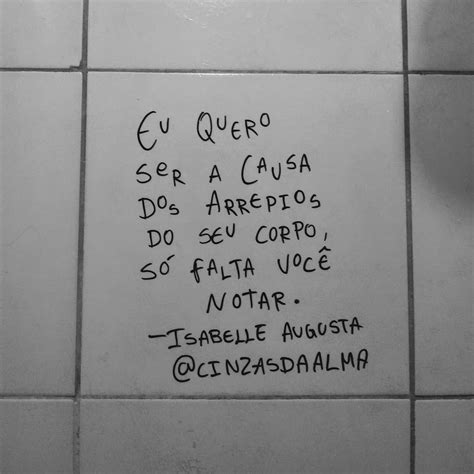 Eu Quero
ser a Causa
dos arrepios
do seu corpo,
só falta você
notar.
—Isabelle Augusta
@cinzasdaalma